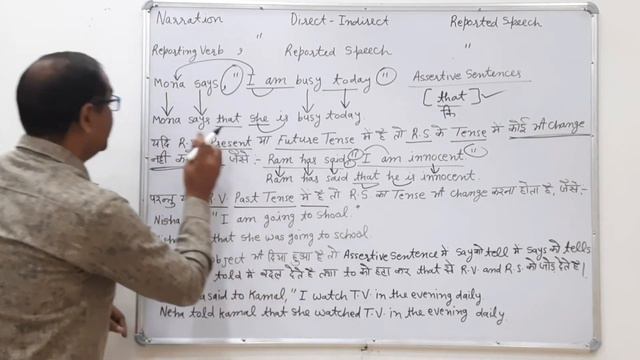 Narration Direct-Indirect Reported Speech
Reporting Verb , " Reported Speech "
Mona says, "I am busy today" Assertive Sentences
[that]
कि
Mona says that she is busy today.
यदि R. Present या Future Tense में है तो R.S के Tense में कोई भी Change
नहीं जैसे :- Ram has said "I am innocent."
Ram has said that he is innocent.
परन्तु R.V. Past Tense में है तो R.S का Tense भी Change करना होता है, जैसे:-
Nisha " I am going to shool."
that she was going to school.
object भी दिया हुआ है तो Assertive Sentence में say को tell में says को tells
told में बदल देते हैं तथा to को हटा कर that से R.V. and R.S. को जोड़ देते हैं।
said to Kamal, "I watch T.V. in the evening daily
Neha told Kamal that she watched T.V. in the evening daily